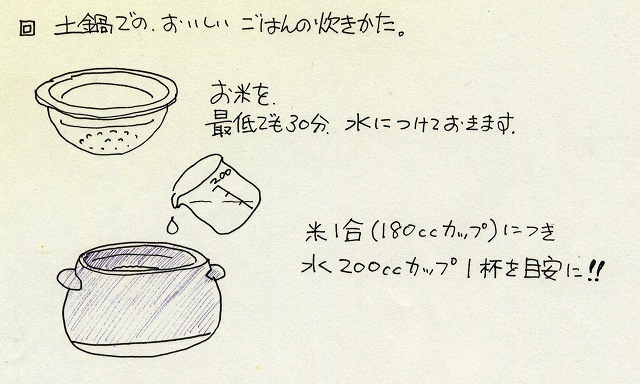 回 土鍋での、おいしい ごはんの炊きかた。
お米を、
最低でも30分、水につけておきます。
200
米1合(180ccカップ)につき
水200ccカップ1杯を目安に!!